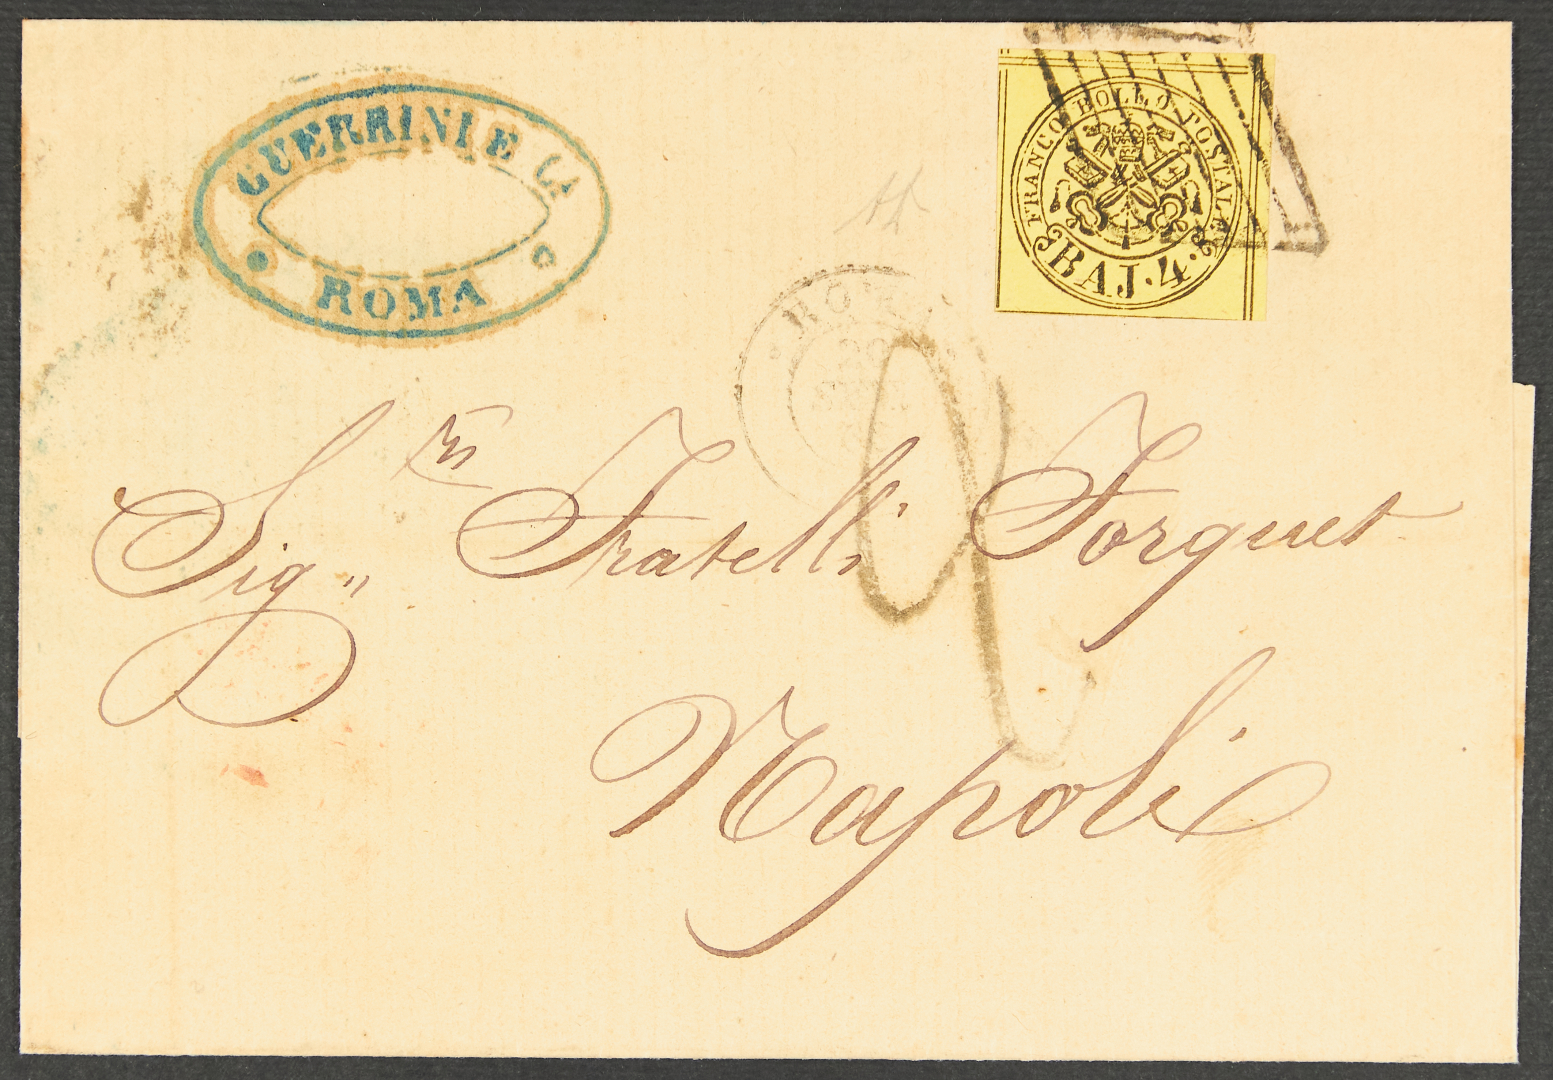 GUERRINI E Ca
ROMA
FRANCO BOLLO POSTALE
BAJ. 4.
ROMA
20
Sig.ri Fratelli Forquet
Napoli